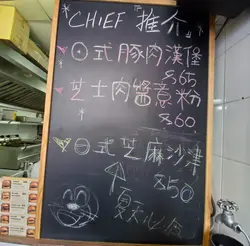 "CHIEF"推介"
日式豚肉漢堡
$65
芝士肉醬意粉
$60
日式芝麻沙津
$50
夏天必食